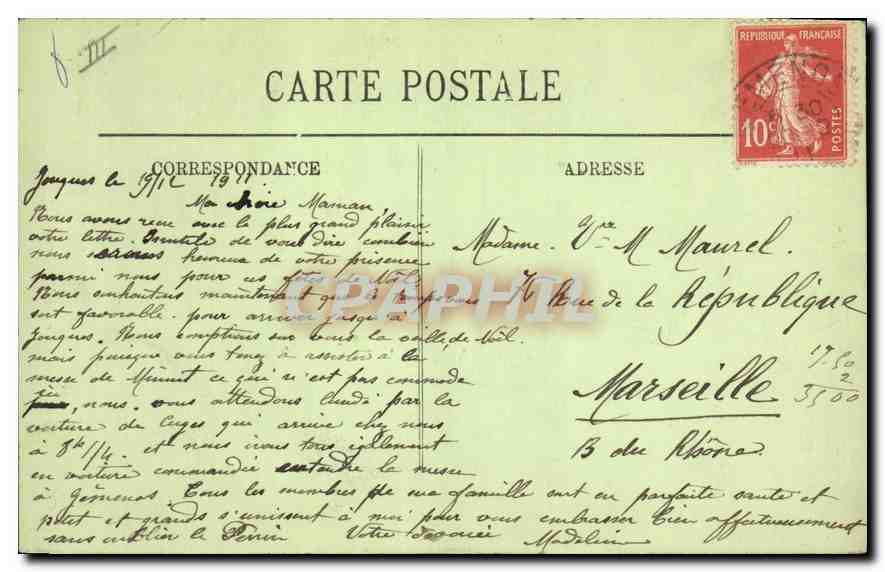 III
CARTE POSTALE
REPUBLIQUE FRANÇAISE
10c
POSTES
CORRESPONDANCE
ADRESSE
le 19/12 1911.
Ma chère Maman,
Nous avons reçu avec le plus grand plaisir
votre lettre. Inutile de vous dire combien
nous serons heureux de votre présence
parmi nous pour ces fêtes de Noël.
Nous souhaitons maintenant que le temps vous
soit favorable pour arriver jusqu'à
Nous comptions sur vous la veille de Noël.
mais puisque vous tenez à assister à la
messe de Minuit ce qui n'est pas commode
ici, nous vous attendons lundi par la
voiture de Cuges qui arrive chez nous
à 8h 1/4. et nous irons tous également
en voiture commandée entendre la messe
à Gémenos. Tous les membres de ma famille sont en parfaite santé et
petit et grands s'unissent à moi pour vous embrasser bien affectueusement
sans oublier le Perrin Votre dévouée Madeleine
Madame Vve M Maurel.
Rue de la République
Marseille
B du Rhône
17.50
2
35.00
CPAPHIL